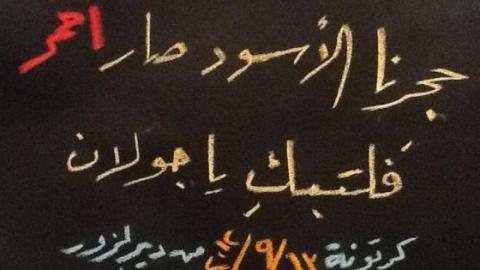 حجرنا الأسود صار احمر
فَلتبكِ يا جولان
كرتونة ١٣/٩/ من ديرالزور